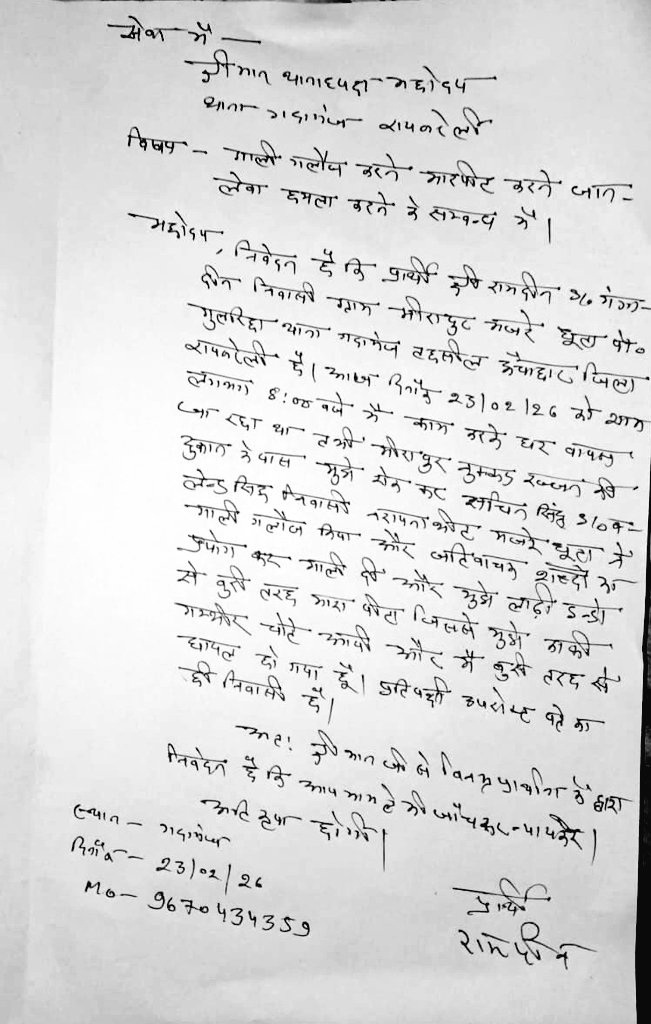 सेवा में —
श्रीमान थानाध्यक्ष महोदय
थाना गदागंज रायबरेली
विषय – गाली गलौज करने मारपीट करने जान-
लेवा हमला करने के सम्बन्ध में |
महोदय, निवेदन है कि प्रार्थी श्री रामदीन S/o गंगा-
दीन निवासी ग्राम मीरापुर मजरे धूता पो०
गुलरिहा थाना गदागंज तहसील ऊँचाहार जिला
रायबरेली है | आज दिनाँक 23/02/26 को शाम
लगभग 8:00 बजे मैं काम करके घर वापस
जा रहा था तभी मीरापुर नुक्कड़ रज्जन की
दुकान के पास मुझे रोक कर सचिन सिंह S/o
सिंह निवासी नरायनकोट मजरे धूता ने
गाली गलौज किया और जातिवाचक शब्दों का
प्रयोग कर गाली दी और मुझे लाठी डन्डो
से बुरी तरह मारा पीटा जिससे मुझे काफी
गम्भीर चोटे आयी और मैं बुरी तरह से
घायल हो गया हूँ | प्रतिवादी उपरोक्त पते का
ही निवासी है |
अतः श्रीमान जी से विनम्र प्रार्थना के द्वारा
निवेदन है कि आप मामले की जाँच कर न्याय करें |
अति कृपा होगी |
स्थान – गदागंज
दिनाँक – 23/02/26
Mo – 9670434359
प्रार्थी
रामदीन